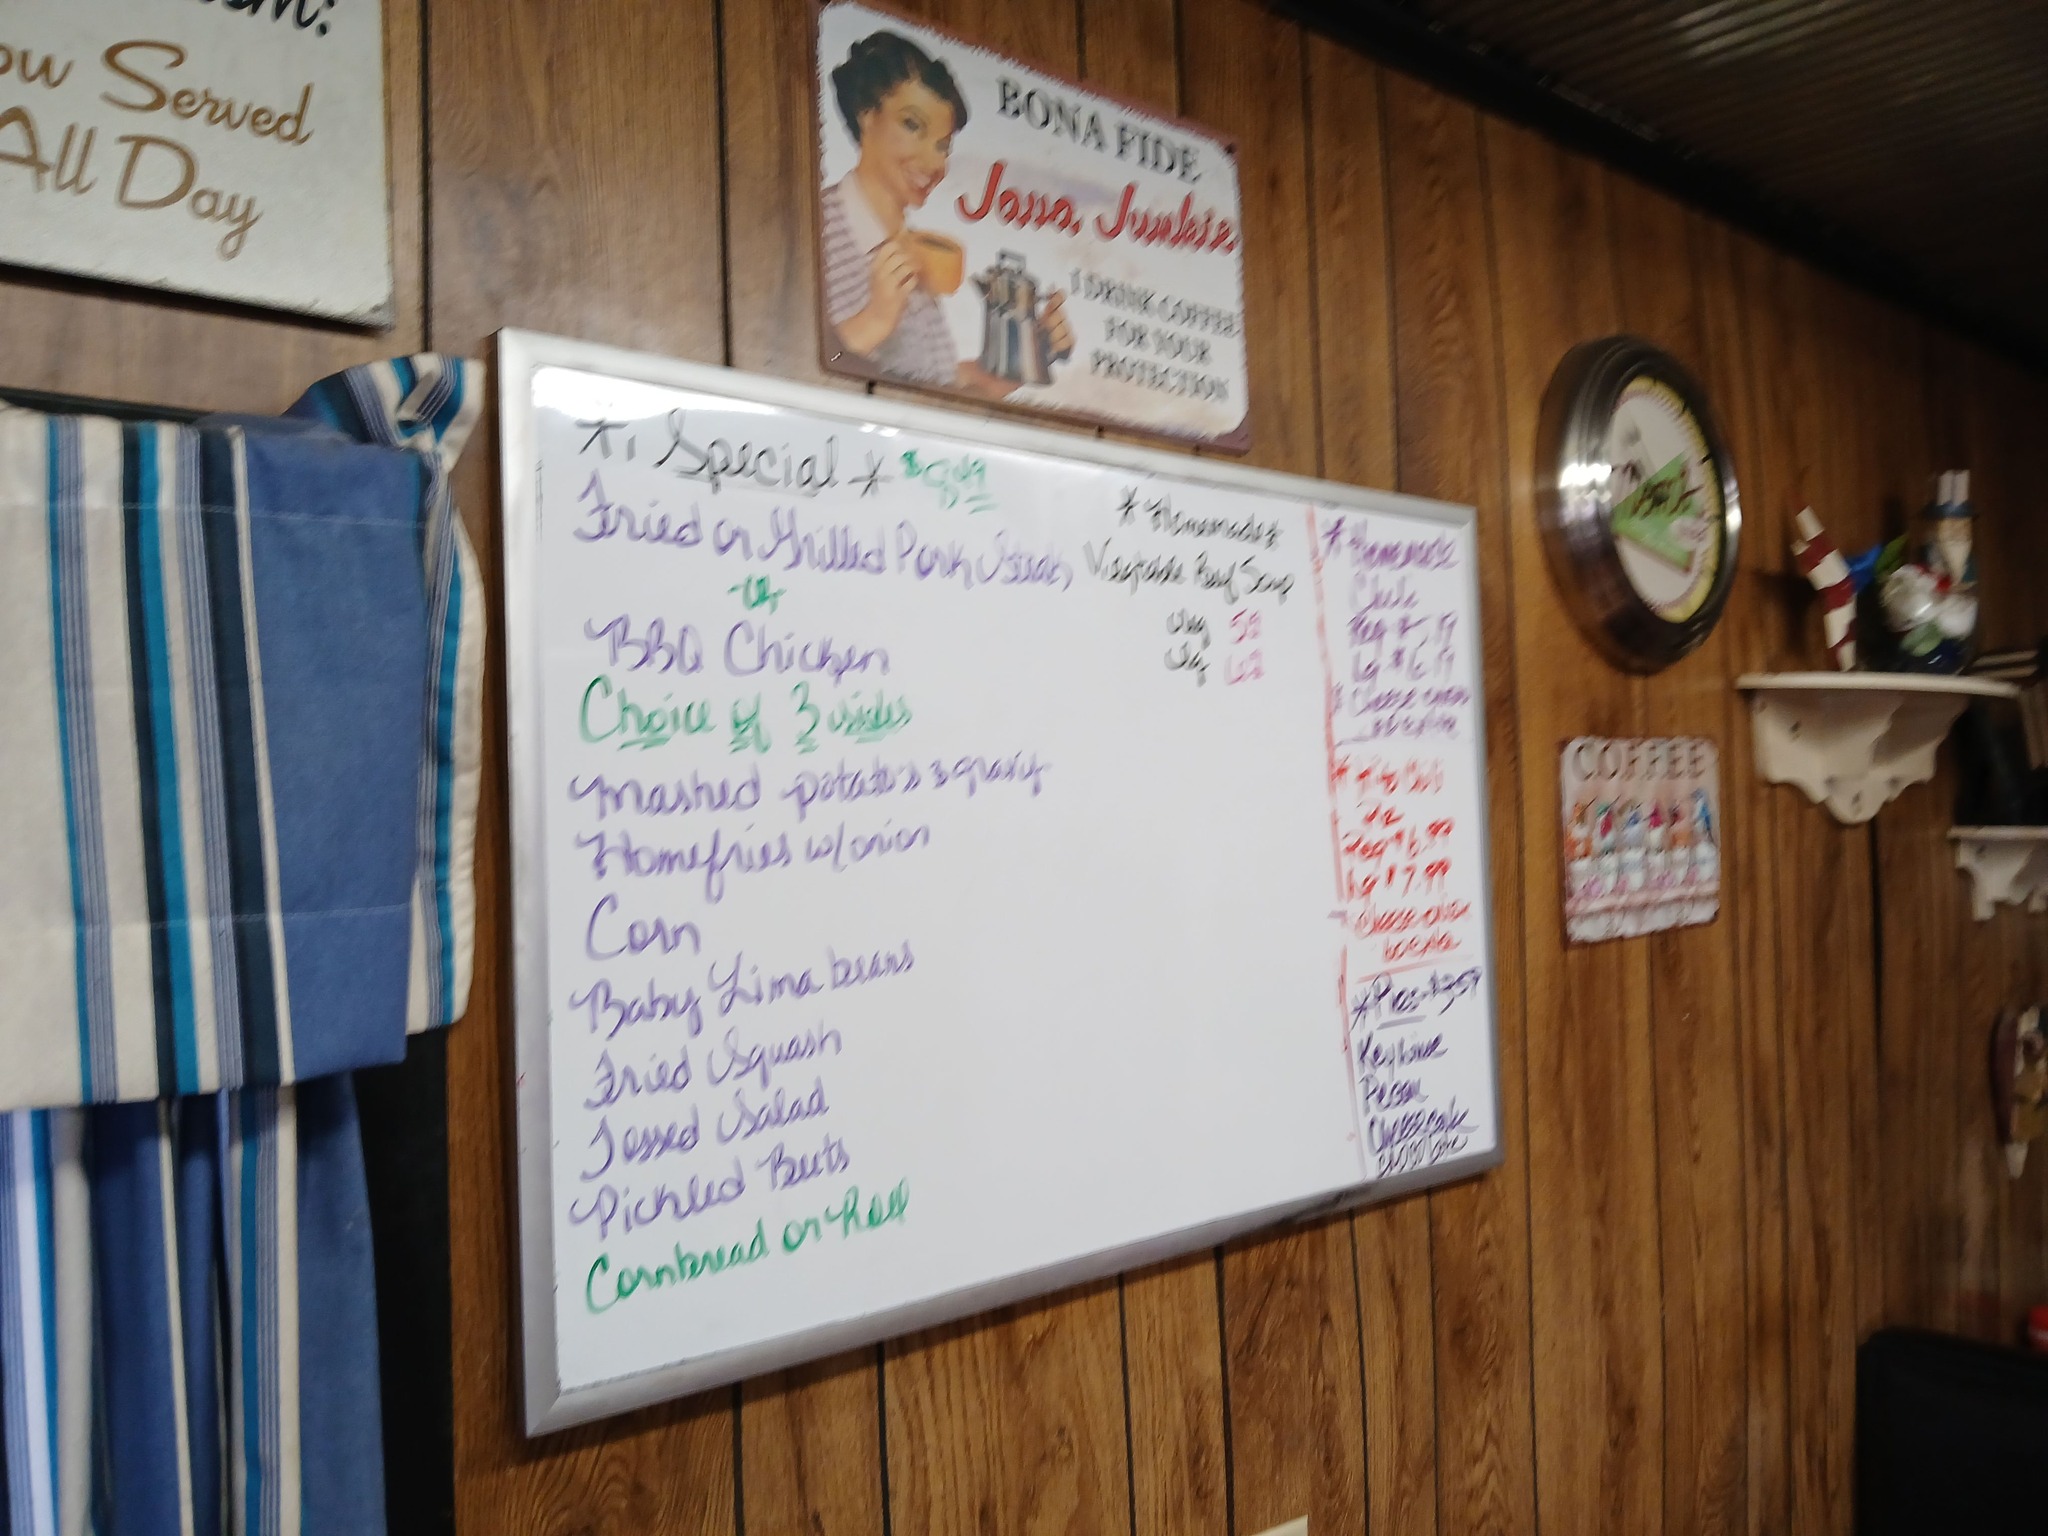 ow Served
All Day
BONA FIDE
Java Junkie
I DRINK COFFEE
FOR YOUR
PROTECTION
* Special * $9.49
Fried or Grilled Pork Steak
-or-
BBQ Chicken
Choice of 3 sides
Mashed potato's & gravy
Homefries w/onion
Corn
Baby Lima beans
Fried Squash
Tossed Salad
Pickled Beets
Cornbread or Roll
* Homemade *
Vegetable Beef Soup
* Homemade
Reg
lg $6.19
Cheese
Reg $6.99
lg $7.99
Cheese
* Pies - $3.59
Keylime
Pecan
Cheesecake
COFFEE